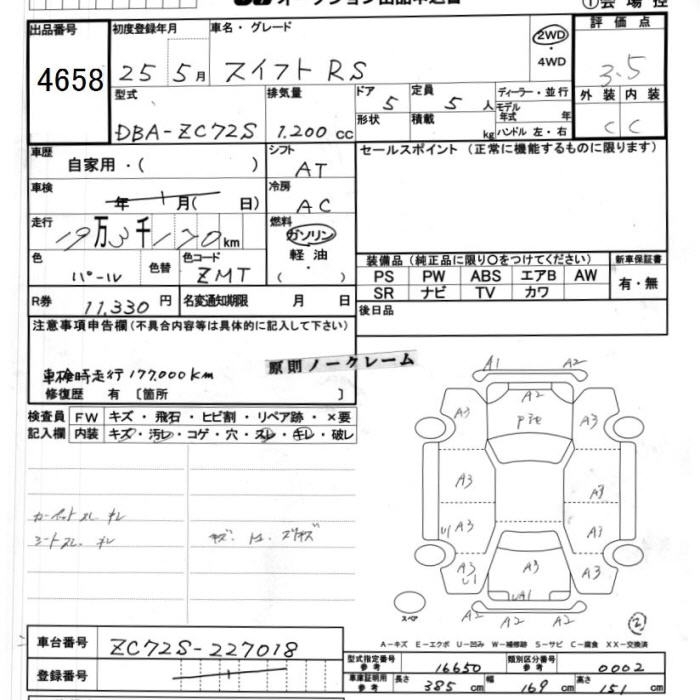 オークション出品申込書
①会場控
出品番号
4658
初度登録年月
25 5月
車名・グレード
スイフト RS
2WD
・
4WD
評価点
3.5
型式
DBA-ZC72S
排気量
1.200 cc
ドア
5
定員
5 人
ディーラー・並行
モデル年式 年
外装 内装
C C
形状
積載
kg
ハンドル 左・右
車歴
自家用・( )
シフト
AT
セールスポイント (正常に機能するものに限ります)
車検
年 月( 日)
冷房
AC
走行
19万3千170km
燃料
ガソリン
・
軽油
( )
色
パール
色替
色コード
ZMT
装備品(純正品に限り○をつけてください)
新車保証書
PS PW ABS エアB AW
有・無
SR ナビ TV カワ
R券
11,330 円
名変通知期限
月 日
後日品
注意事項申告欄(不具合内容等は具体的に記入して下さい)
原則ノークレーム
車検時走行177,000km
修復歴 有 〔箇所 〕
検査員
記入欄
FW キズ・飛石・ヒビ割・リペア跡・×要
内装 キズ・汚レ・コゲ・穴・スレ・キレ・破レ
カーペットスレ キレ
シートスレ. キレ
A1 A2
A3 A2 A3
A3 A3
A3 A3
A3 A3 A3
A2 A2 A2
スペア
②
A-キズ E-エクボ U-凹み W-補修跡 S-サビ C-腐食 XX-交換済
車台番号
ZC72S-227018
登録番号
型式指定番号
参考
16650
類別区分番号
参考
0002
車庫証明用
参考
長さ 385 cm 幅 169 cm 高さ 151 cm